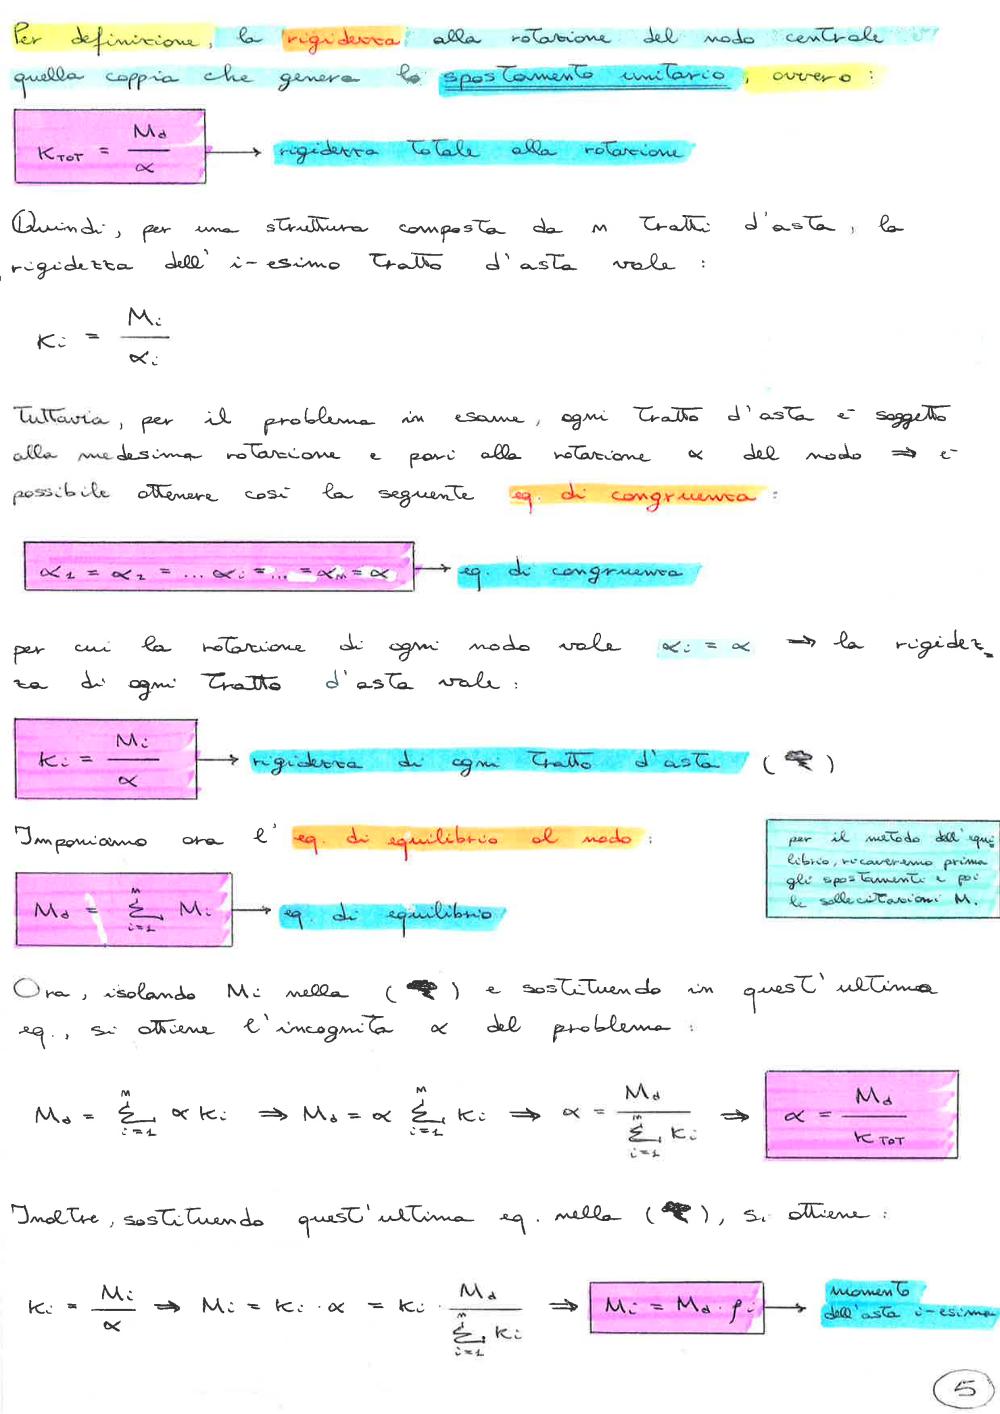 Per definizione, la rigidezza alla rotazione del nodo centrale è
quella coppia che genera lo spostamento unitario, ovvero :
K_TOT = M_d / α → rigidezza totale alla rotazione
Quindi, per una struttura composta da n tratti d'asta, la
rigidezza dell' i-esimo tratto d'asta vale :
K_i = M_i / α_i
Tuttavia, per il problema in esame, ogni tratto d'asta è soggetto
alla medesima rotazione e pari alla rotazione α del nodo ⇒ è
possibile ottenere così la seguente eq. di congruenza :
α_1 = α_2 = ... α_i = ... = α_n = α → eq. di congruenza
per cui la rotazione di ogni nodo vale α_i = α ⇒ la rigidez-
za di ogni tratto d'asta vale :
K_i = M_i / α → rigidezza di ogni tratto d'asta ( )
Imponiamo ora l' eq. di equilibrio al nodo :
per il metodo dell'equi
librio, ricaveremo prima
gli spostamenti e poi
le sollecitazioni M.
M_d = Σ_{i=1}^{n} M_i → eq. di equilibrio
Ora, isolando M_i nella ( ) e sostituendo in quest'ultima
eq., si ottiene l'incognita α del problema :
M_d = Σ_{i=1}^{n} α K_i ⇒ M_d = α Σ_{i=1}^{n} K_i ⇒ α = M_d / Σ_{i=1}^{n} K_i ⇒ α = M_d / K_TOT
Inoltre, sostituendo quest'ultima eq. nella ( ), si ottiene :
K_i = M_i / α ⇒ M_i = K_i · α = K_i · M_d / Σ_{i=1}^{n} K_i ⇒ M_i = M_d · ρ_i → momento
dell'asta i-esima
5